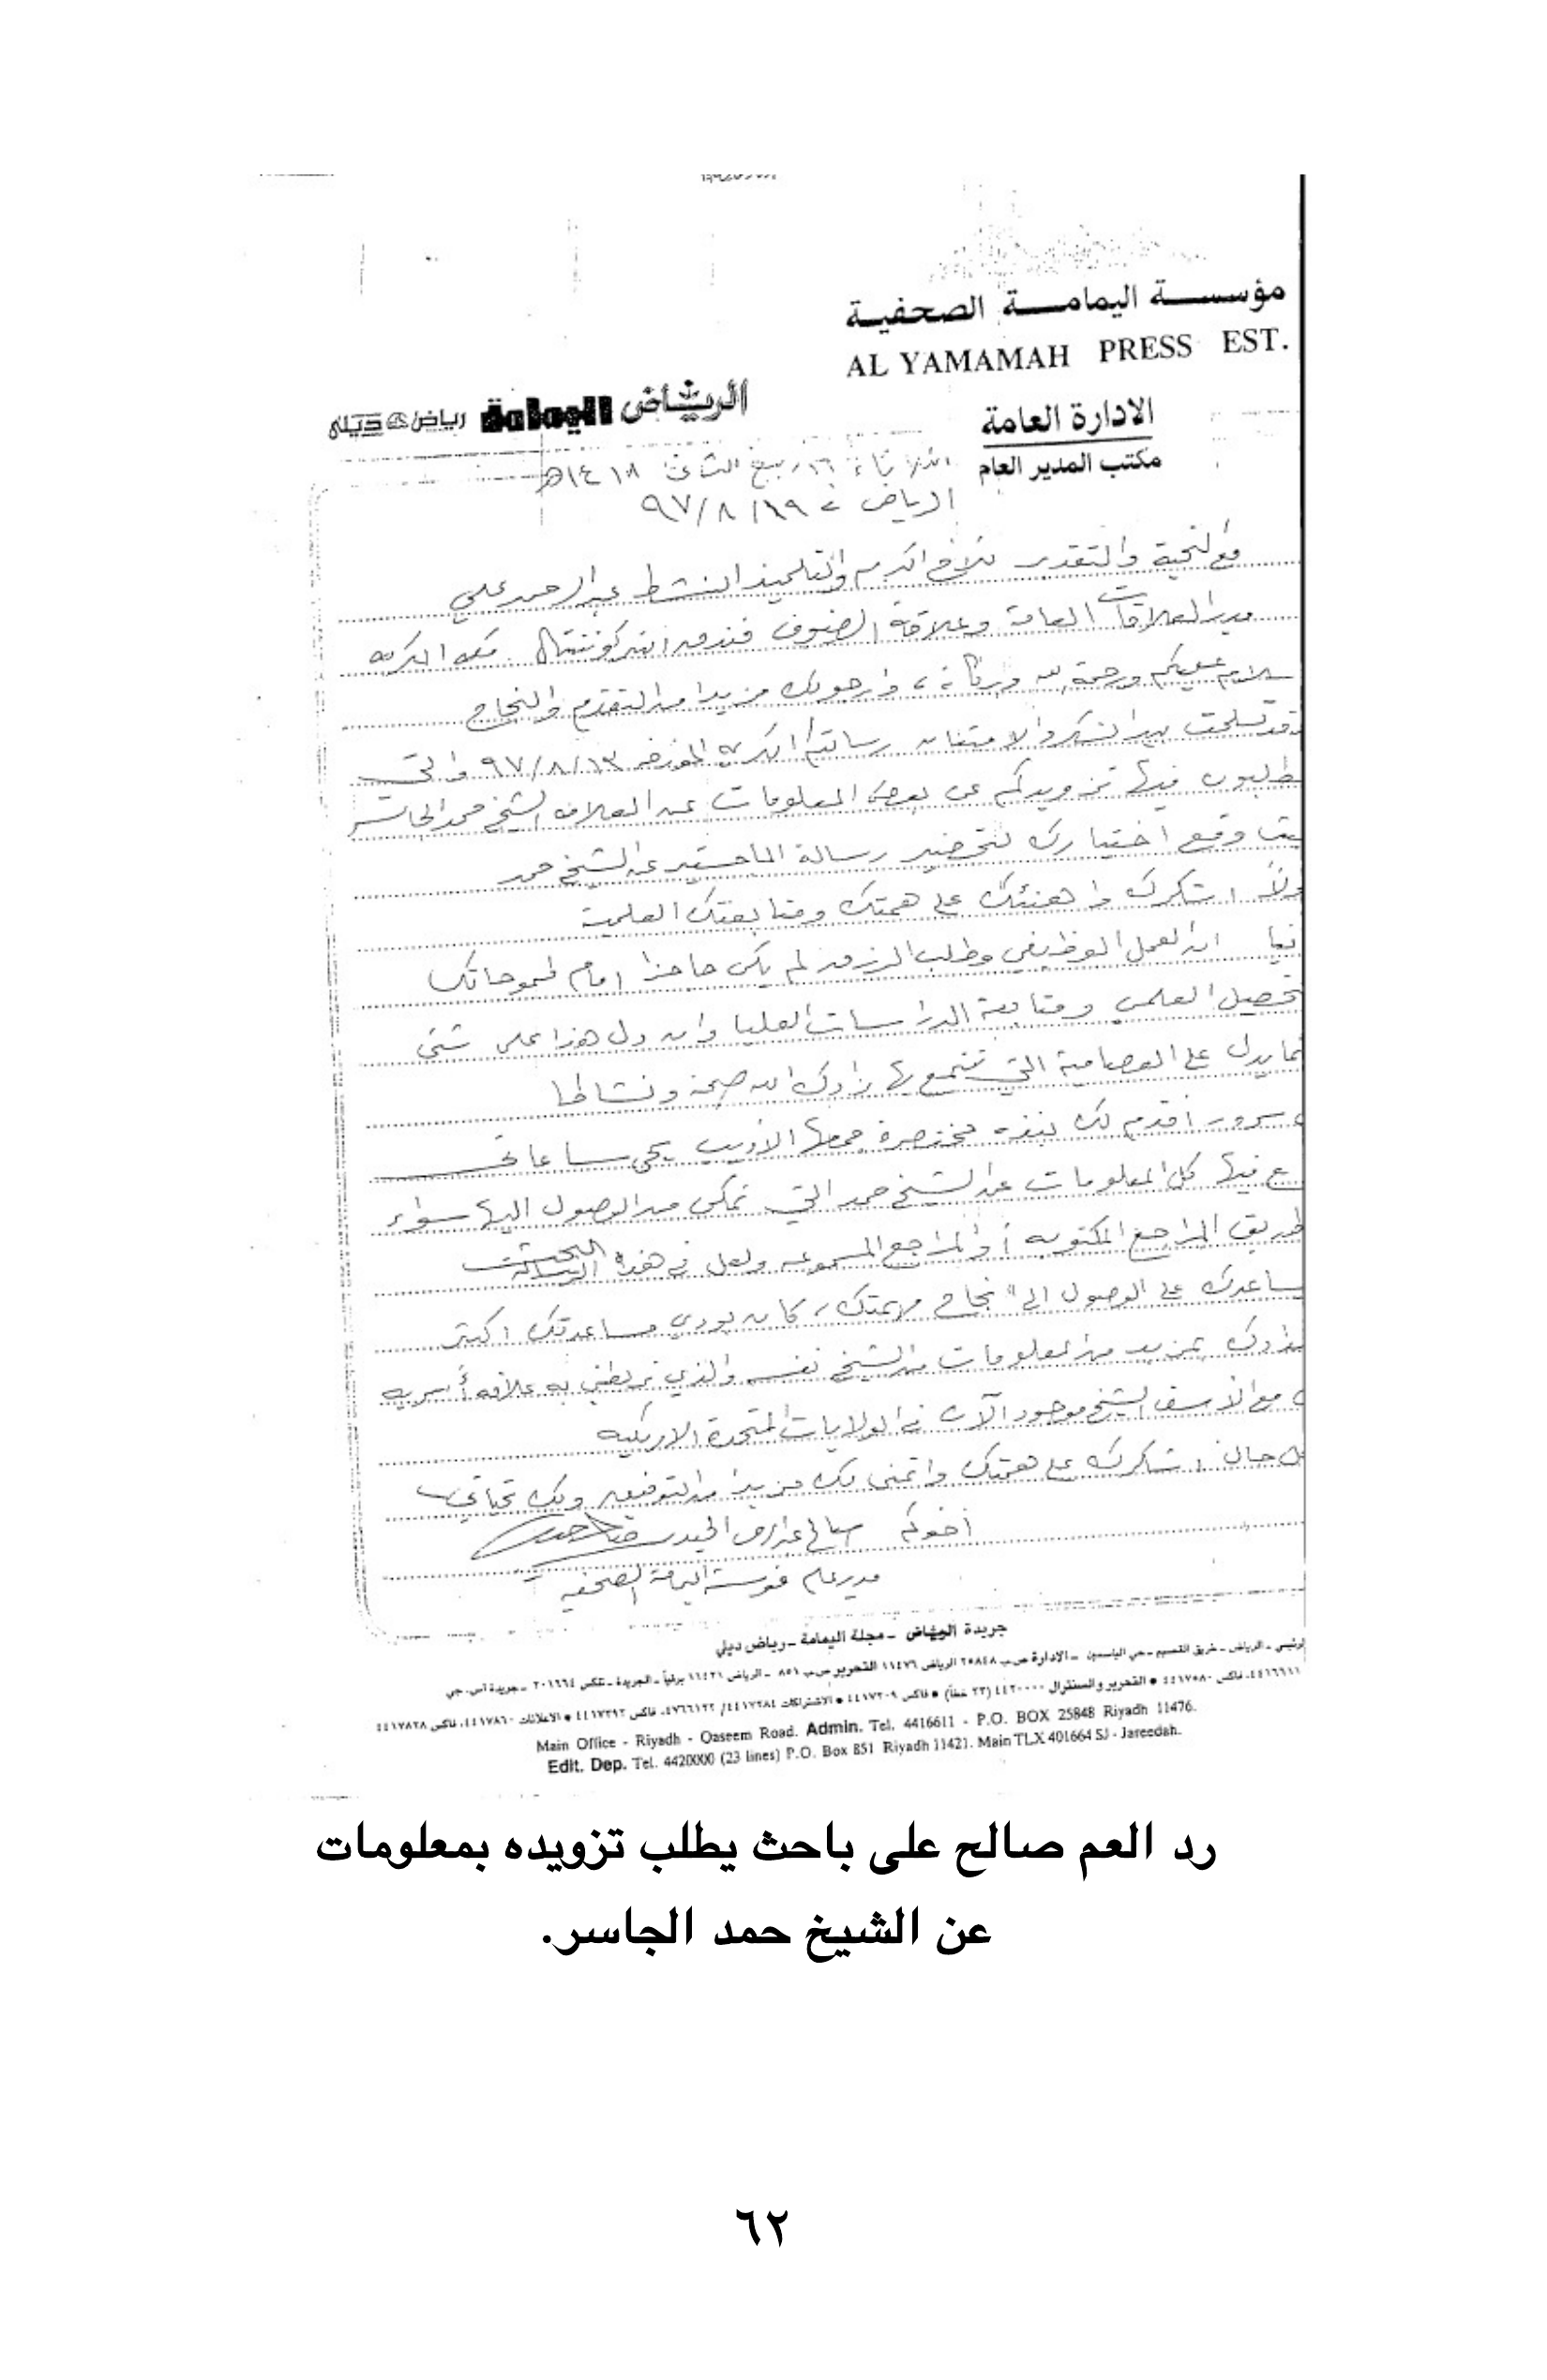 مؤسسة اليمامة الصحفية
AL YAMAMAH PRESS EST.
الرياض اليمامة رياض ديلي
الادارة العامة
مكتب المدير العام
الثلاثاء ١٦ ربيع الثاني ١٤١٨هـ
الرياض في ٩٧/٨/١٩
مع التحية والتقدير للأخ الكريم والتلميذ النشط عبدالرحمن علي
مدير العلاقات العامة وعلاقة الضيوف فندق انتركونتننتال مكه المكرمه
سلام عليكم ورحمة الله وبركاته، وارجو لك مزيدا من التقدم والنجاح
قد تسلمت بيد الشكر والامتنان رسالتكم الكريمه المؤرخه ٩٧/٨/١٣ والتي
طلبون فيها تزويدكم عن بعض المعلومات عن العلامه الشيخ حمد الجاسر
وقع اختيارك لتحضير رسالة الماجستير عن الشيخ حمد
ولاً اشكرك واهنئك على همتك ومتابعتك العلمية
نيا ان العمل الوظيفي وطلب الرزق لم يكن حاجزا امام طموحاتك
تحصيل العلمي ومتابعة الدراسات العليا وان دل هذا على شئي
نما يدل على العصامية التي تتمتع بها زادك الله صحة ونشاطا
سرور اقدم لك نبذه مختصرة جمعها الأديب يحي ساعاتي
ع فيها كل المعلومات عن الشيخ حمد التي تمكن من الوصول اليها سواء
طريق المراجع المكتوبه أو المراجع المسموعه ولعل في هذه البحث
ساعدك على الوصول الى نجاح مهمتك، كان بودي مساعدتك اكثر
بمزيد من المعلومات من الشيخ نفسه والذي تربطني به علاقه أسريه
مع الاسف الشيخ موجود الآن في الولايات المتحدة الامريكيه
ل حال اشكرك على همتك واتمنى لك مزيدا من التوفيق ولك تحياتي
اخوكم صالح
مدير عام مؤسسة اليمامة الصحفيه
جريدة الرياض - مجلة اليمامة - رياض ديلي
الرئيسي - الرياض - طريق القصيم - حي الياسمين - الادارة ص.ب ٢٥٨٤٨ الرياض ١١٤٧٦ التحرير ص.ب ٨٥١ - الرياض ١١٤٢١ برقياً - الجريدة - تلكس ٢٠١٦٦٤ - جريدة اس. جي
٤٤١٦٦١١، فاكس ٤٤١٧٥٨٠ • التحرير والسنترال ٤٤٢٠٠٠٠ (٢٣ خطاً) • فاكس ٤٤١٧٢٠٩ • الاشتراكات
Main Office - Riyadh - Qaseem Road. Admin. Tel. 4416611 - P.O. BOX 25848 Riyadh 11476.
Edit. Dep. Tel. 4420000 (23 lines) P.O. Box 851 Riyadh 11421. Main TLX 401664 SJ - Jareedah.
رد العم صالح على باحث يطلب تزويده بمعلومات
عن الشيخ حمد الجاسر.
٦٢